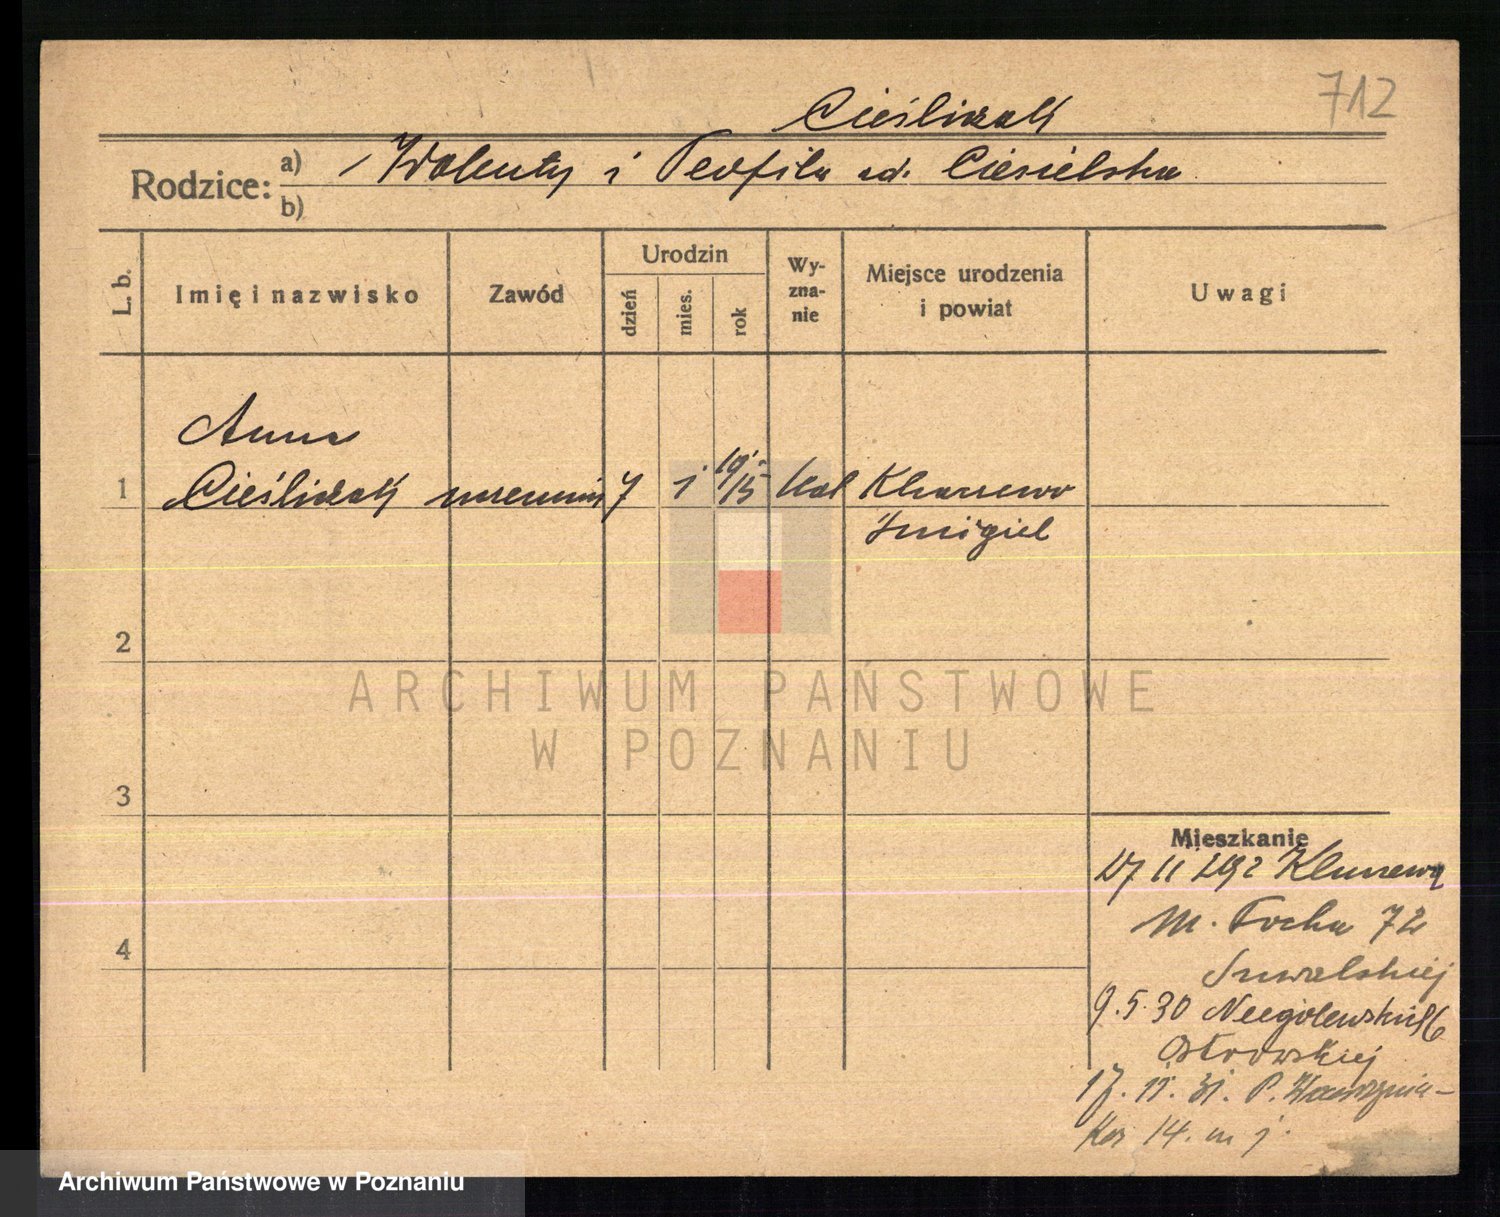 712
Cieślizak
Rodzice: a) Walenty i Teofila ad. Ciesielska
b)
L. b.
Imię i nazwisko
Zawód
Urodzin
dzień
mies.
rok
Wy-
zna-
nie
Miejsce urodzenia
i powiat
Uwagi
Anna
1 Cieślizak uczennica 7 1 1915 kat
Śmigiel
2
3
4
Mieszkanie
M. Focha 72
Suwalskiej
9.5.30 Niegolewskich 6
Ostrowskiej
17. 11. 31. P. Wawrzynia-
ka 14. m 1.
ARCHIWUM PAŃSTWOWE
W POZNANIU
Archiwum Państwowe w Poznaniu